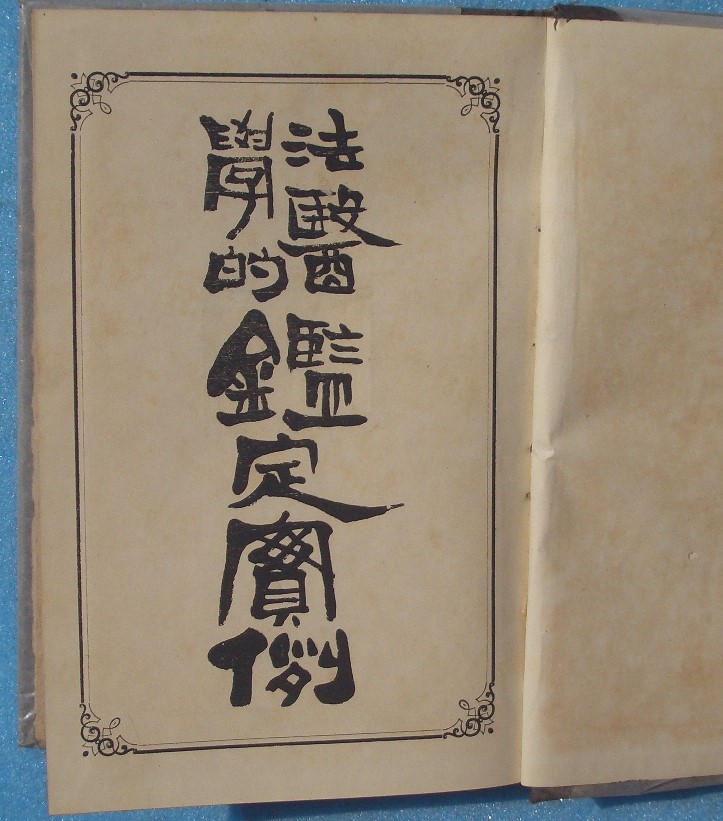 法醫
學的
鑑定實例